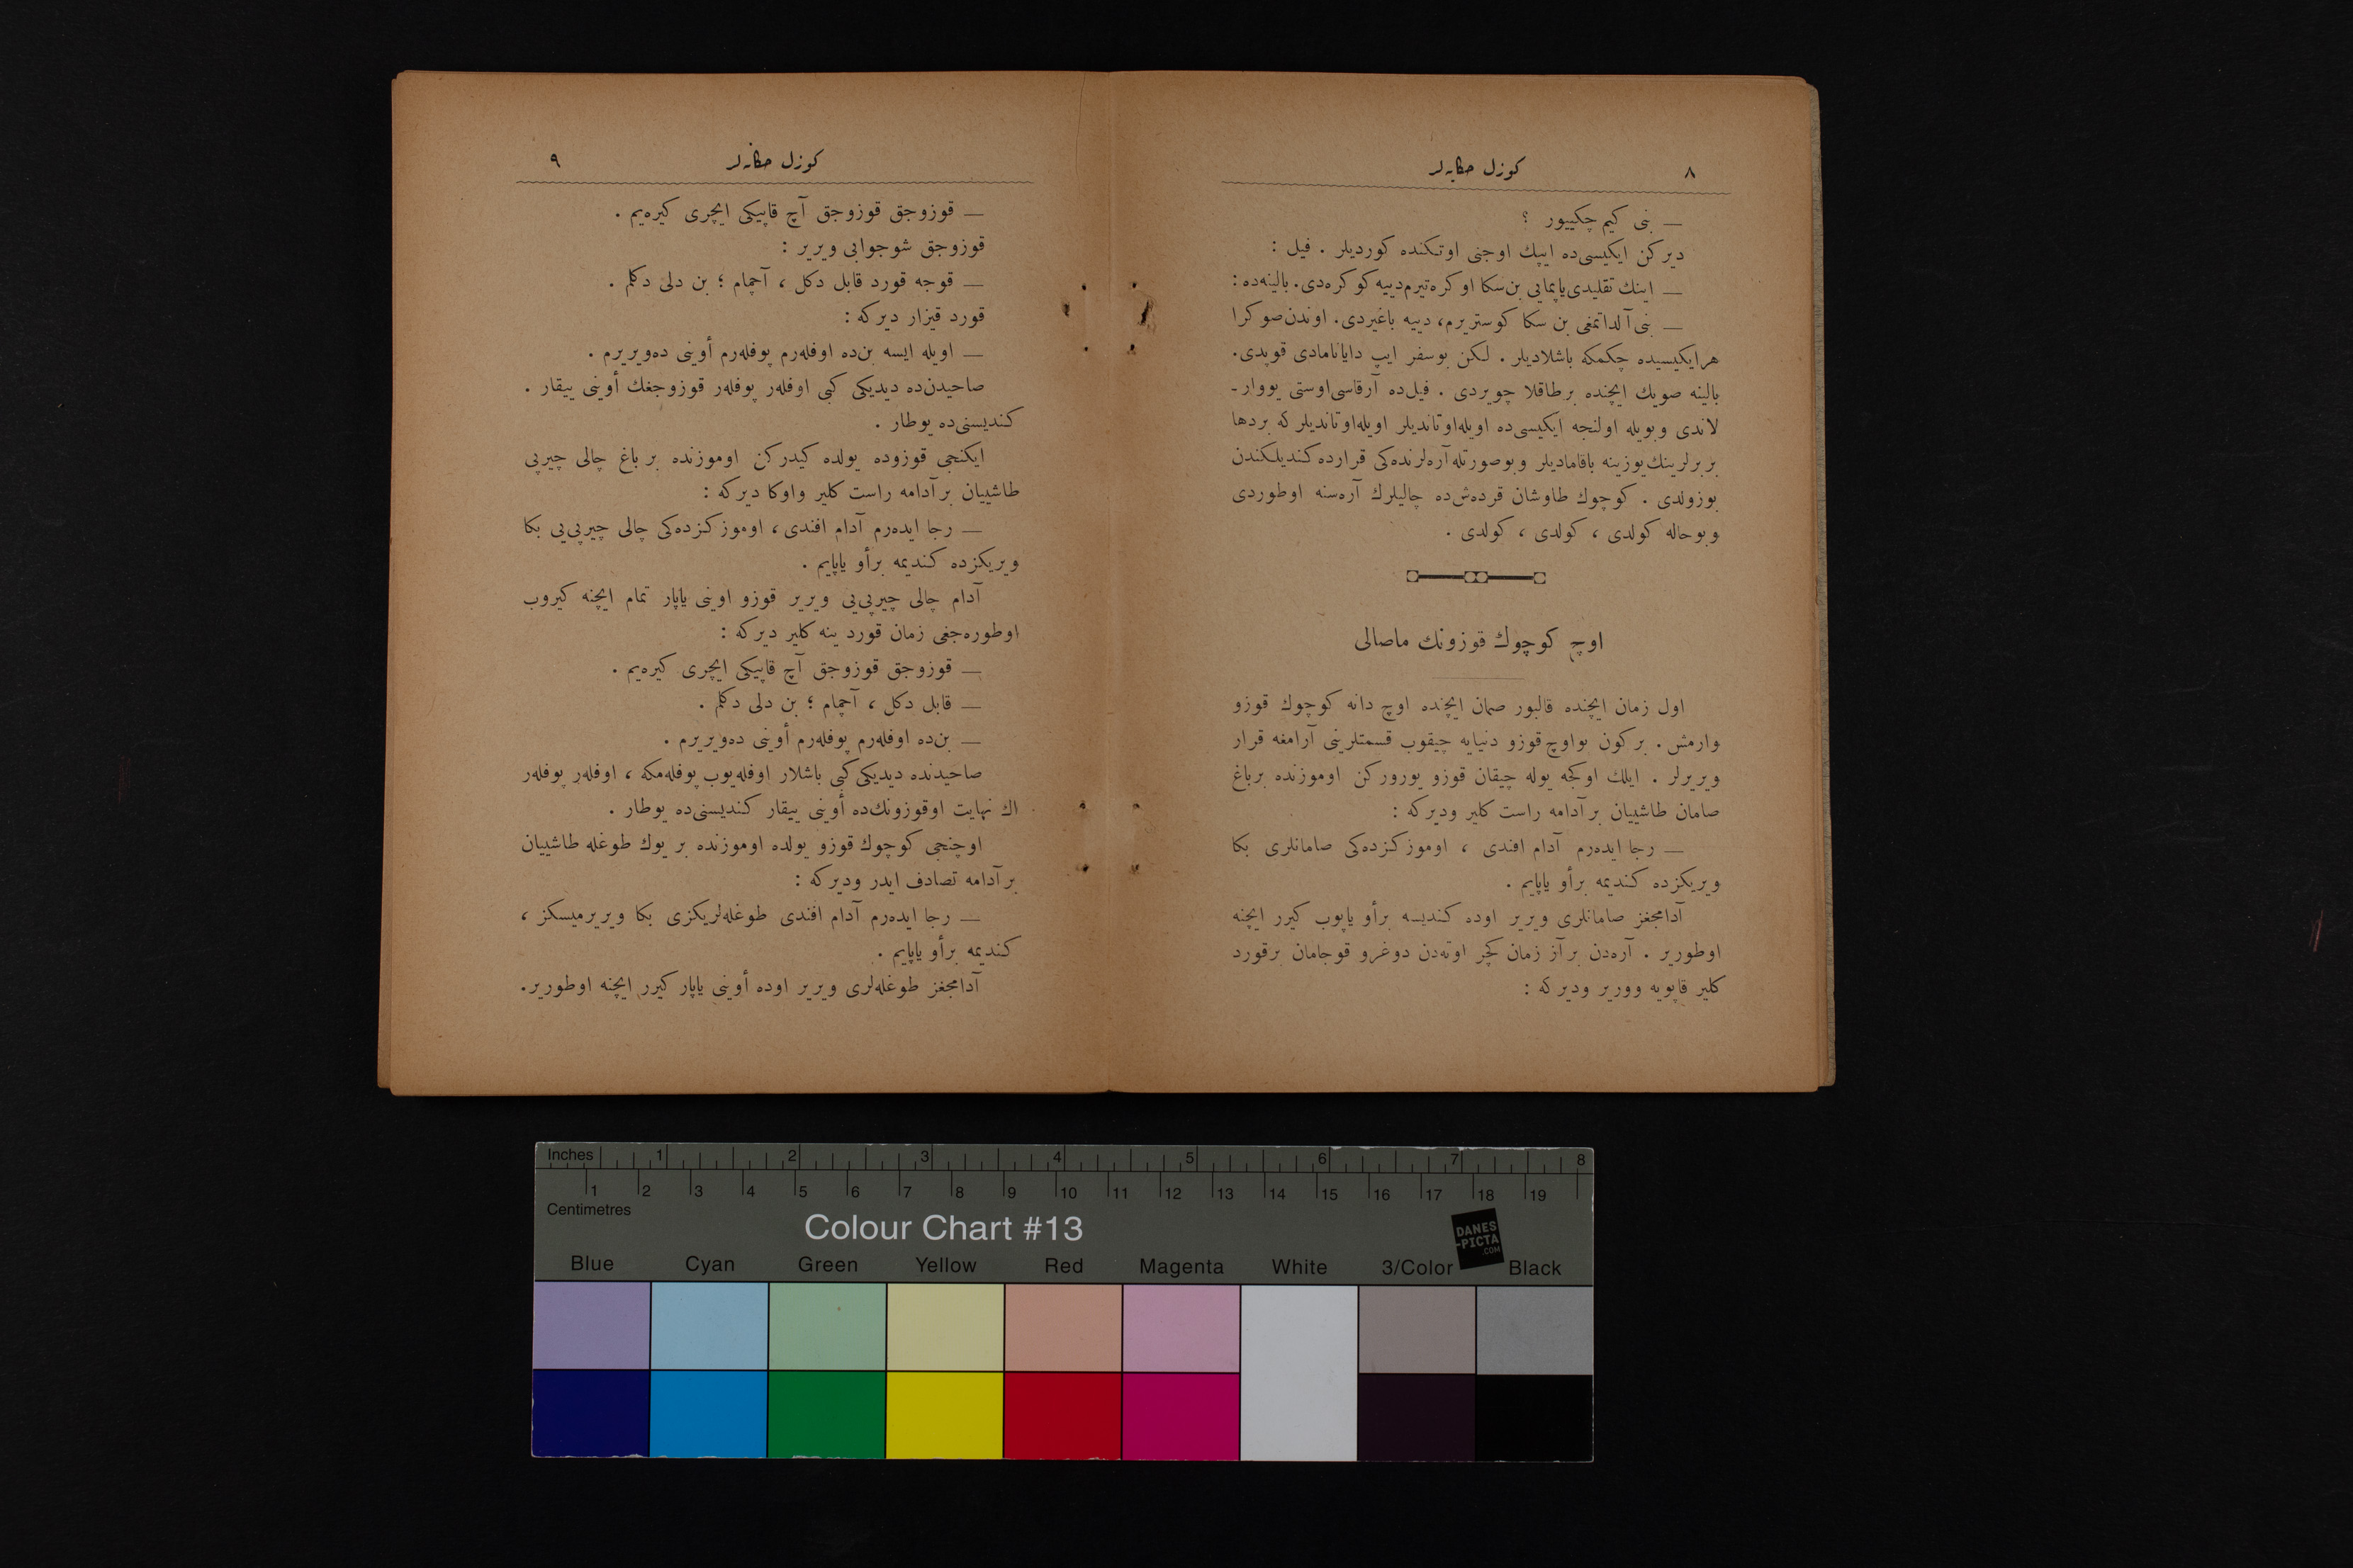 ٨
كوزل حكايه‌لر
— بنی كيم چكييور ؟
ديركن ايكيسی‌ده ايپك اوجنی اوتكنده كورديلر . فيل :
— اينك تقليدی ياپمايی بن سكا اوكره‌تيرم دييه كوكره‌دی. بالينه‌ده :
— بنی آلداتمغی بن سكا كوستريرم، دييه باغيردی. اوندن صوكرا
هرايكيسيده چكمكه باشلاديلر . لكن بوسفر ايپ دايانامادی قوپدی.
بالينه صويك ايچنده برطاقلا چويردی . فيل‌ده آرقاسی اوستی يووار-
لاندی وبويله اولنجه ايكيسی‌ده اويله‌اوتانديلر اويله‌اوتانديلر كه بردها
بربرلرينك يوزينه باقاماديلر وبوصورتله آره‌لرنده‌كی قرارده كنديلكندن
بوزولدی . كوچوك طاوشان قرده‌ش‌ده چاليلرك آره‌سنه اوطوردی
وبوحاله كولدی ، كولدی ، كولدی .
اوچ كوچوك قوزونك ماصالی
اول زمان ايچنده قالبور صمان ايچنده اوچ دانه كوچوك قوزو
وارمش . بركون بواوچ قوزو دنيايه چيقوب قسمتلرينی آرامغه قرار
ويريرلر . ايلك اوكجه يوله چيقان قوزو يوروركن اوموزنده برباغ
صامان طاشييان برآدامه راست كلير وديركه :
— رجا ايده‌رم آدام افندی ، اوموزكزده‌كی صامانلری بكا
ويريكزده كنديمه برأو ياپايم .
آدامجغز صامانلری ويرير اوده كنديسه برأو ياپوب كيرر ايچنه
اوطورير . آره‌دن برآز زمان كچر اوته‌دن دوغرو قوجامان برقورد
كلير قاپويه وورير وديركه :
٩
كوزل حكايه‌لر
— قوزوجق قوزوجق آچ قاپيكی ايچری كيره‌يم .
قوزوجق شو جوابی ويرير :
— قوجه قورد قابل دكل ، آچمام ؛ بن دلی دكلم .
قورد قيزار ديركه :
— اويله ايسه بن‌ده اوفله‌رم پوفله‌رم أوينی ده‌ويريرم .
صاحيدن‌ده ديديكی كبی اوفله‌ر پوفله‌ر قوزوجغك أوينی ييقار .
كنديسنی‌ده يوطار .
ايكنجی قوزوده يولده كيدركن اوموزنده برباغ چالی چيرپی
طاشييان برآدامه راست كلير واوكا ديركه :
— رجا ايده‌رم آدام افندی ، اوموزكزده‌كی چالی چيرپی‌يی بكا
ويريكزده كنديمه برأو ياپايم .
آدام چالی چيرپی‌يی ويرير قوزو اوينی ياپار تمام ايچنه كيروب
اوطوره‌جغی زمان قورد ينه كلير ديركه :
— قوزوجق قوزوجق آچ قاپيكی ايچری كيره‌يم .
— قابل دكل ، آچمام ؛ بن دلی دكلم .
— بن‌ده اوفله‌رم پوفله‌رم أوينی ده‌ويريرم .
صاحيدنده ديديكی كبی باشلار اوفله‌يوب پوفله‌مكه ، اوفله‌ر پوفله‌ر
اك نهايت اوقوزونك‌ده أوينی ييقار كنديسنی‌ده يوطار .
اوچنجی كوچوك قوزو يولده اوموزنده بر يوك طوغله طاشييان
برآدامه تصادف ايدر وديركه :
— رجا ايده‌رم آدام افندی طوغله‌لريكزی بكا ويريرميسكز ،
كنديمه برأو ياپايم .
آدامجغز طوغله‌لری ويرير اوده أوينی ياپار كيرر ايچنه اوطورير.
Inches 1 2 3 4 5 6 7 8
1 2 3 4 5 6 7 8 9 10 11 12 13 14 15 16 17 18 19
Centimetres
Colour Chart #13
DANES
-PICTA
.COM
Blue Cyan Green Yellow Red Magenta White 3/Color Black